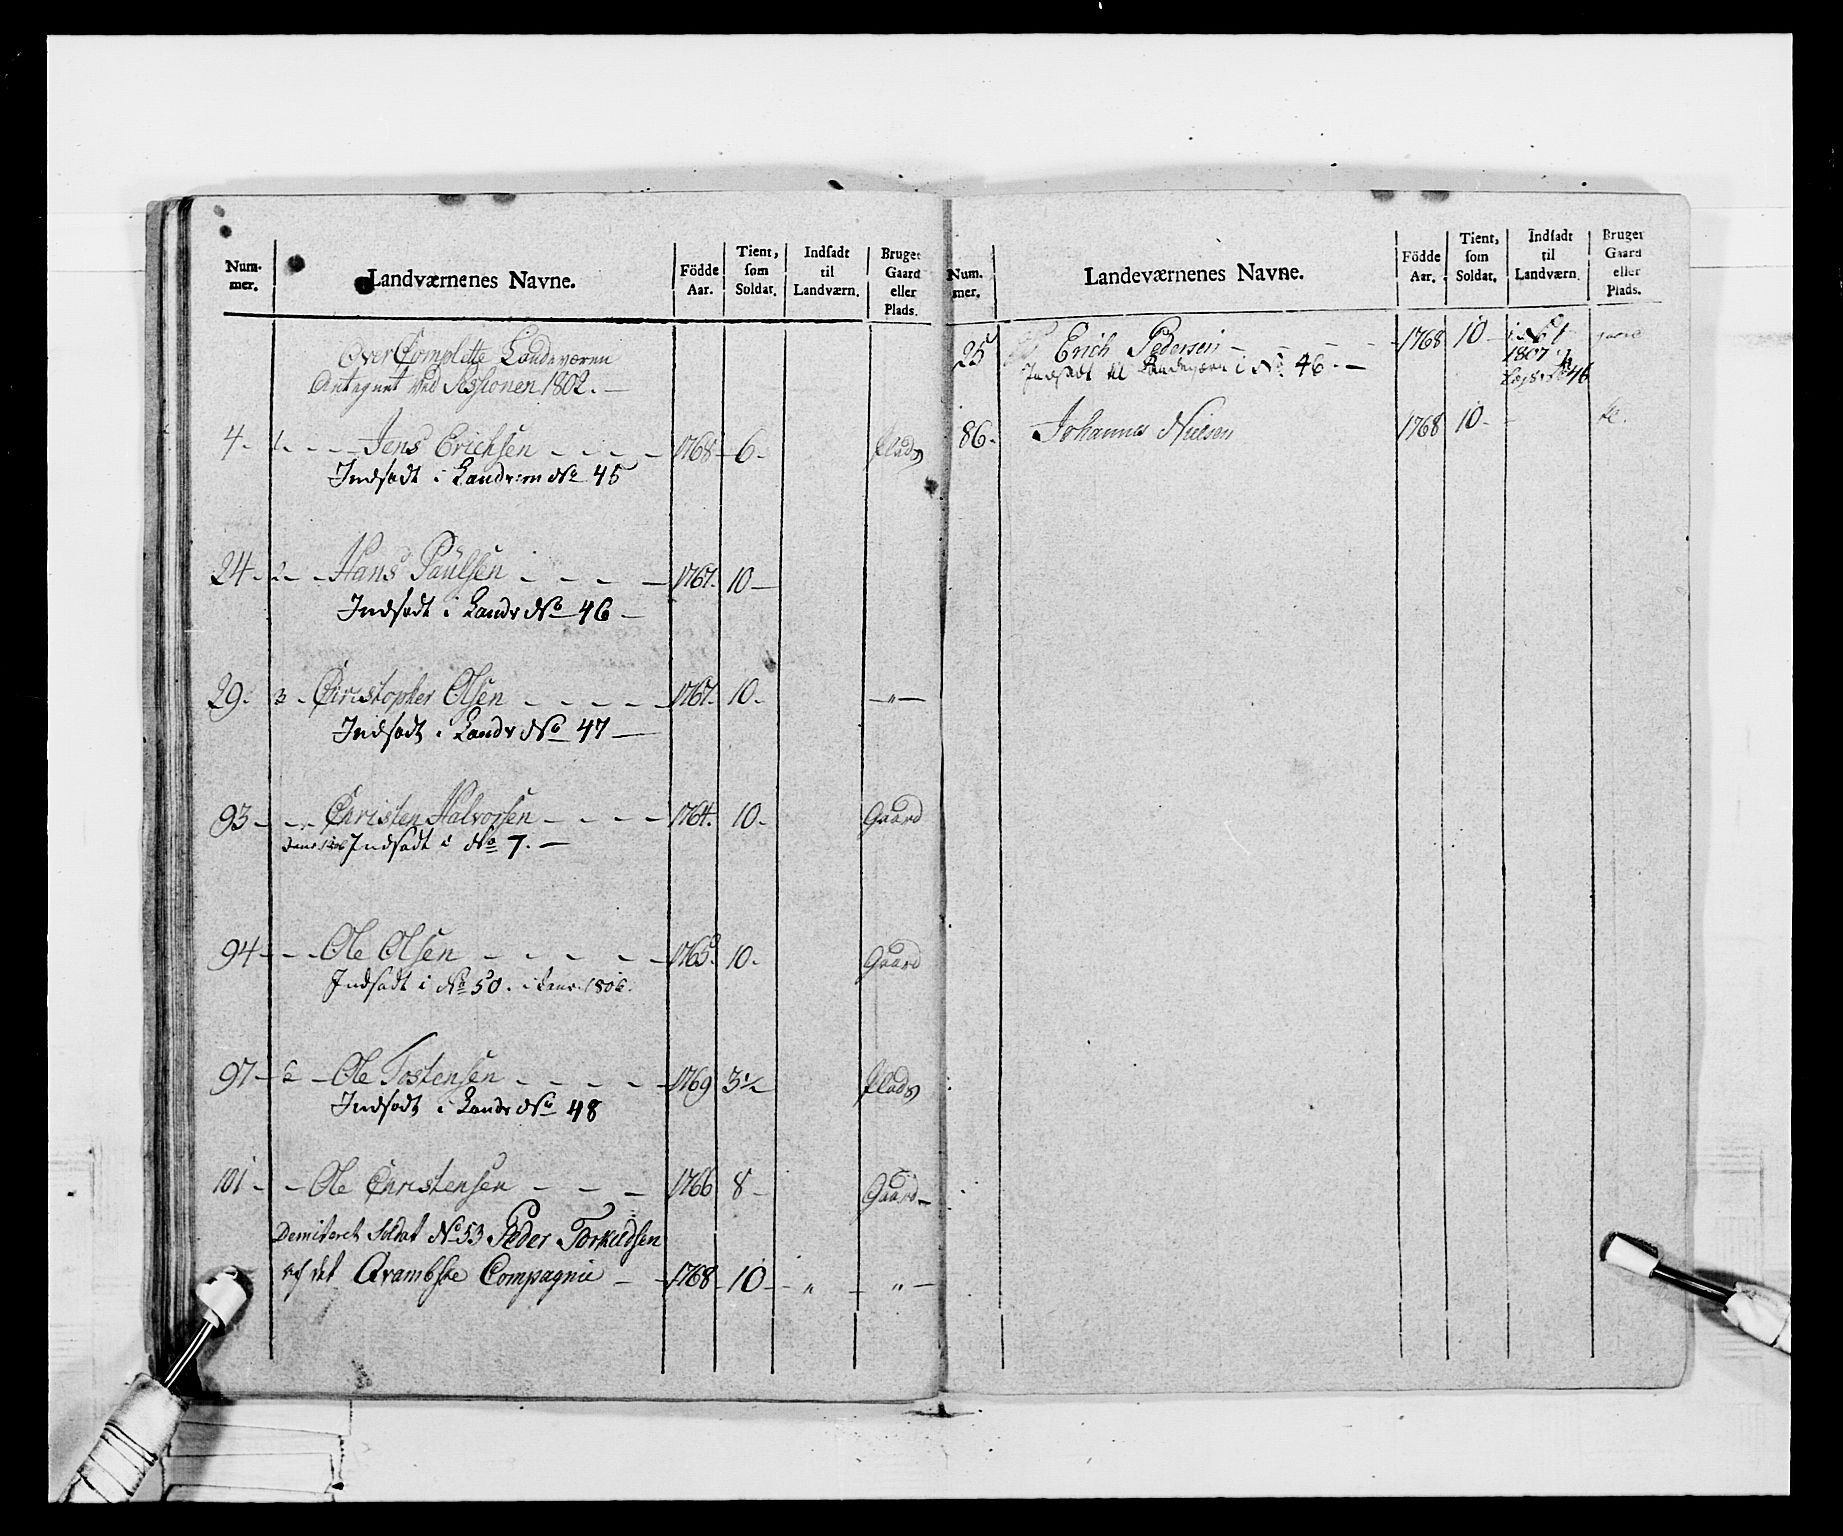 Num- Landværnenes Navne. Födde Tient, Indsadt Bruger
mer. Aar. som til Gaard
Soldat. Landværn. eller
Plads.
Over Complette Landeværn
Antegnet ved Sessionen 1802. —
4. 1. Jens Erichsen 1768 6. Plads
Indsadt i Landværn No 45
24. 2. Hans Paülsen 1767. 10 —
Indsadt i Landv No 46 —
29. 3 Christopher Olsen 1767. 10. — „ —
Indsadt i Landv No 47 —
93 Christen Halvorsen 1764. 10. Gaard
Indsadt i No 7. —
94 Ole Olsen 1765. 10. Gaard
Indsadt i No 50. i 1806.
97 Ole Tostensen 1769 3½ Plads
Indsadt i Landv No 48
101 Ole Christensen 1766 8 Gaard
Demiteret Soldat No 53 Peder Torkildsen
af det Compagnie 1768 10 „ „
Num- Landeværnenes Navne. Födde Tient, Indsadt Bruger
mer. Aar. som til Gaard
Soldat. Landværn. eller
Plads.
25 Erich Pedersen 1768 10
Indsadt til Landeværn i No. 46. — 1807
86. Johannes Nielsen 1768 10 -